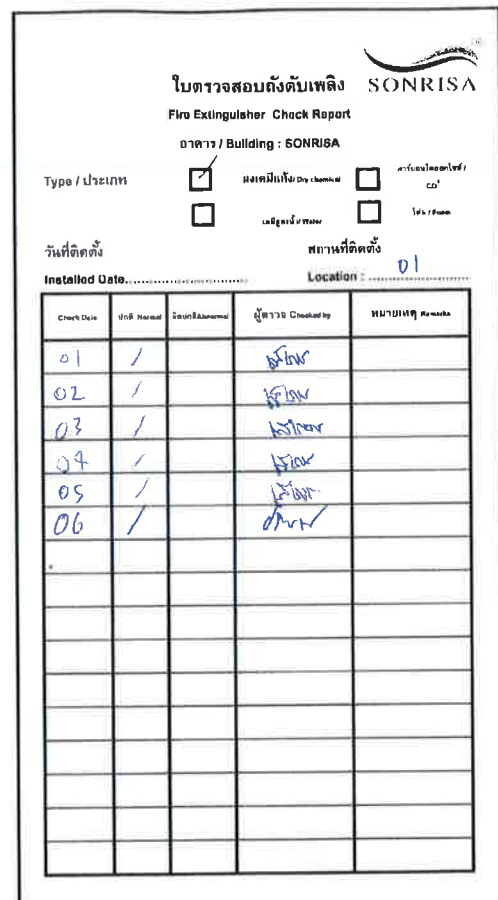 SONRISA
ใบตรวจสอบถังดับเพลิง
Fire Extinguisher Check Report
อาคาร / Building : SONRISA
Type / ประเภท ผงเคมีแห้ง/ Dry chemical คาร์บอนไดออกไซด์ / CO²
เคมีสูตรน้ำ/Water โฟม / Foam
วันที่ติดตั้ง สถานที่ติดตั้ง
Installed Date Location : 01
Check Date ปกติ Normal ผิดปกติAbnormal ผู้ตรวจ Checked by หมายเหตุ Remarks
01 /
02 /
03 /
04 /
05 /
06 /